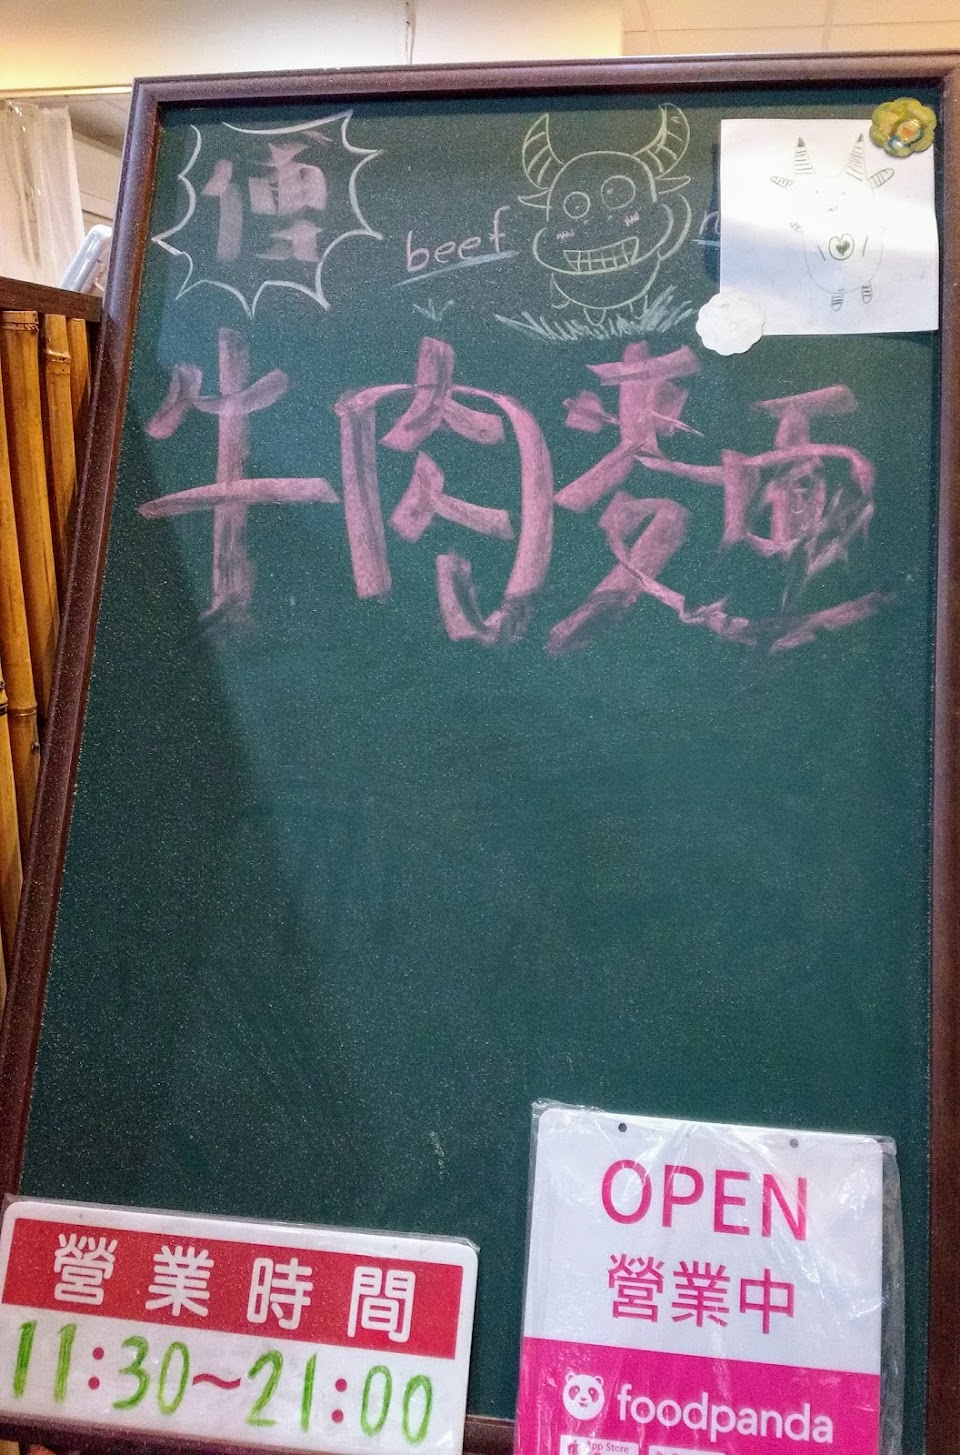 beef
牛肉麵
OPEN
營業中
foodpanda
App Store
營業時間
11:30~21:00